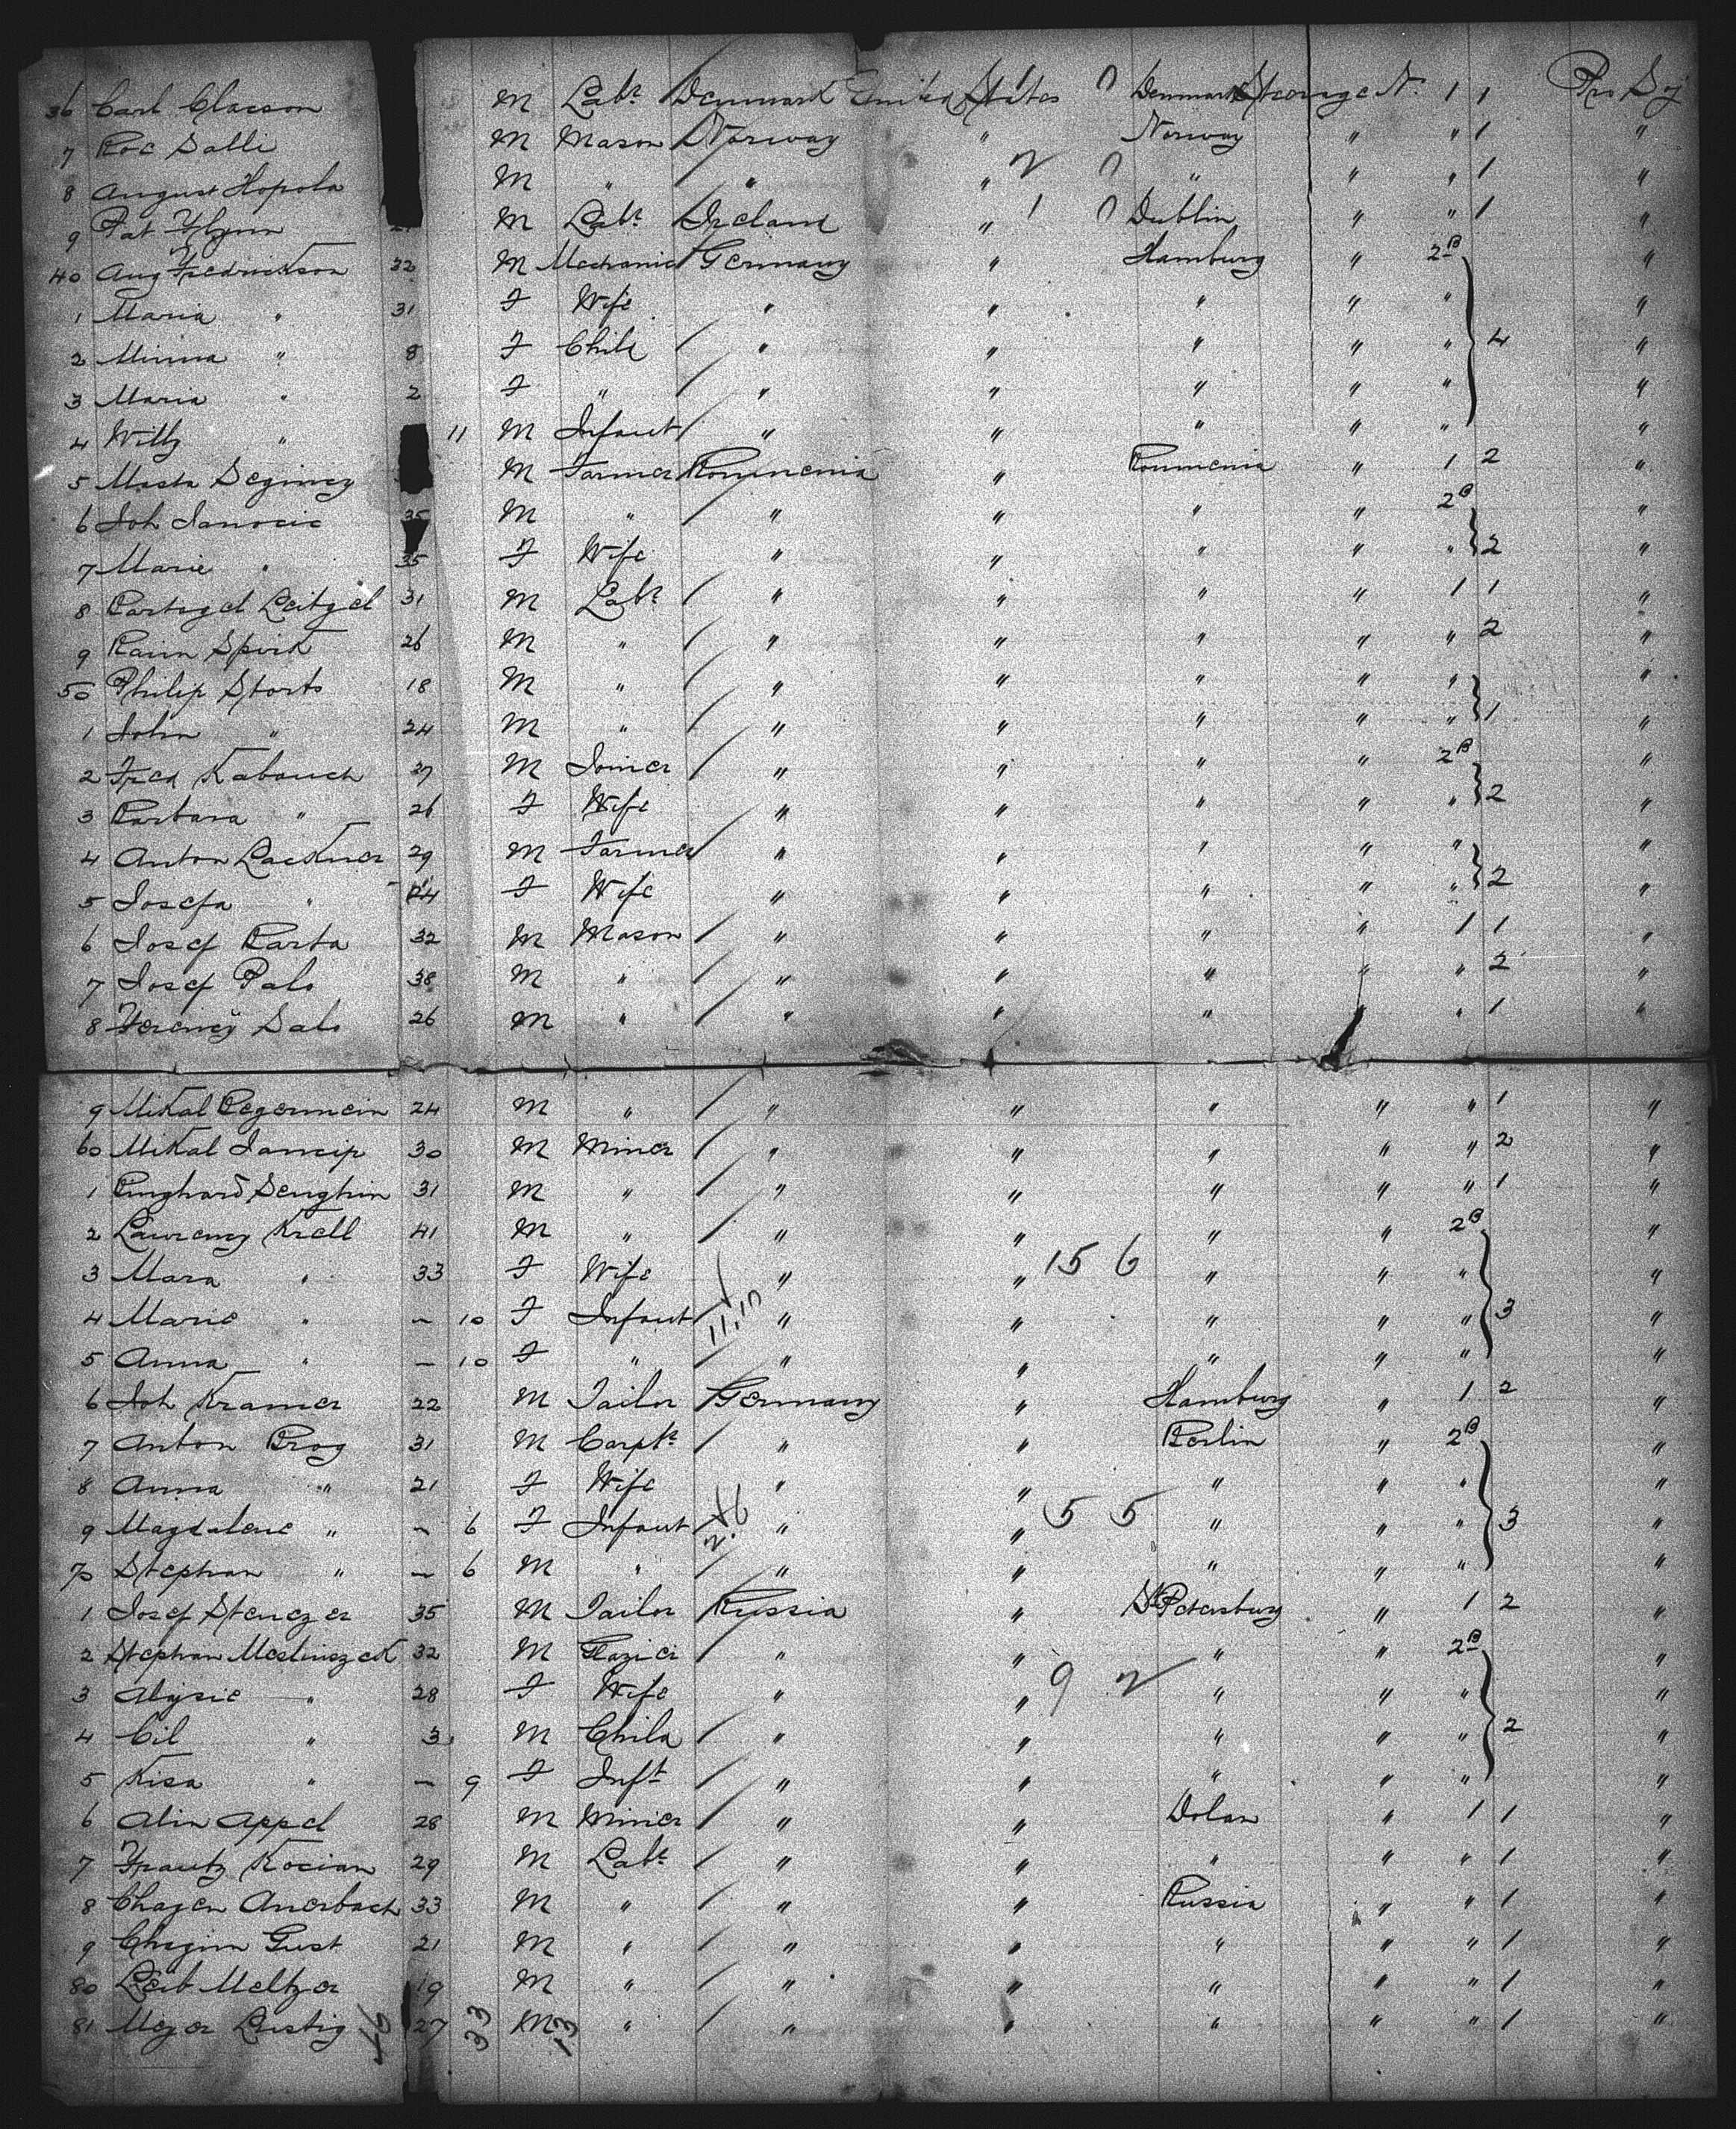 36 Carl Classon M Labr Denmark United States 0 Denmark Steerage N. 1 1 Pro Soj
7 Roc Salli M Mason Norway " Norway " " 1 "
8 August Hopola M " " " 2 0 " " " 1 "
9 Pat Flynn M Labr Ireland " 1 0 Dublin " " 1 "
40 Aug Fredrickson 32 M Mechanic Germany " Hamburg " 2B "
1 Maria " 31 F Wife " " " " " "
2 Minna " 8 F Child " " " " " 4 "
3 Maria " 2 F " " " " " " "
4 Willy " 11 M Infant " " " " " "
5 M Farmer Roumenia " Roumenia " 1 2 "
6 Joh 35 M " " " " " 2B "
7 Marie " 35 F Wife " " " " " 2 "
8 31 M Labr " " " " 1 1 "
9 26 M " " " " " " 2 "
50 Philip Storts 18 M " " " " " " "
1 John " 24 M " " " " " " 1 "
2 Fred Kabouch 27 M Joiner " " " " 2B "
3 Barbara " 26 F Wife " " " " " 2 "
4 Anton Lackner 29 M Farmer " " " " " "
5 Josefa " 24 F Wife " " " " " 2 "
6 Josef Barta 32 M Mason " " " " 1 1 "
7 Josef Palo 38 M " " " " " " 2 "
8 Salo 26 M " " " " " " 1 "
9 Mikal 24 M " " " " " " 1 "
60 Mikal Jancip 30 M Miner " " " " " 2 "
1 31 M " " " " " " 1 "
2 Krell 41 M " " " " " 2B "
3 Mara " 33 F Wife " " 15 6 " " " "
4 Marie " – 10 F Infant 11,10 " " " " " 3 "
5 Anna " – 10 F " " " " " " "
6 Joh Kramer 22 M Tailor Germany " Hamburg " 1 2 "
7 Anton Brog 31 M Carptr " " Berlin " 2B "
8 Anna " 21 F Wife " " " " " "
9 Magdalene " – 6 F Infant 2.6 " " 5 5 " " " 3 "
70 Stephan " – 6 M " " " " " " "
1 Josef Stenczer 35 M Tailor Russia " St Petersburg " 1 2 "
2 Stephan 32 M Glazier " " " " 2B "
3 " 28 F Wife " " 9 2 " " " "
4 Cil " 3 M Child " " " " " 2 "
5 Kisa " – 9 F Inft " " " " " "
6 Alin Appel 28 M Miner " " Dolan " 1 1 "
7 Frantz Kocian 29 M Labr " " " " " 1 "
8 Chagen Auerbach 33 M " " " Russia " " 1 "
9 Gust 21 M " " " " " " 1 "
80 Leib Meltzer 19 M " " " " " " 1 "
81 Mejer Lustig 27 M " " " " " " 1 "
46 33 13